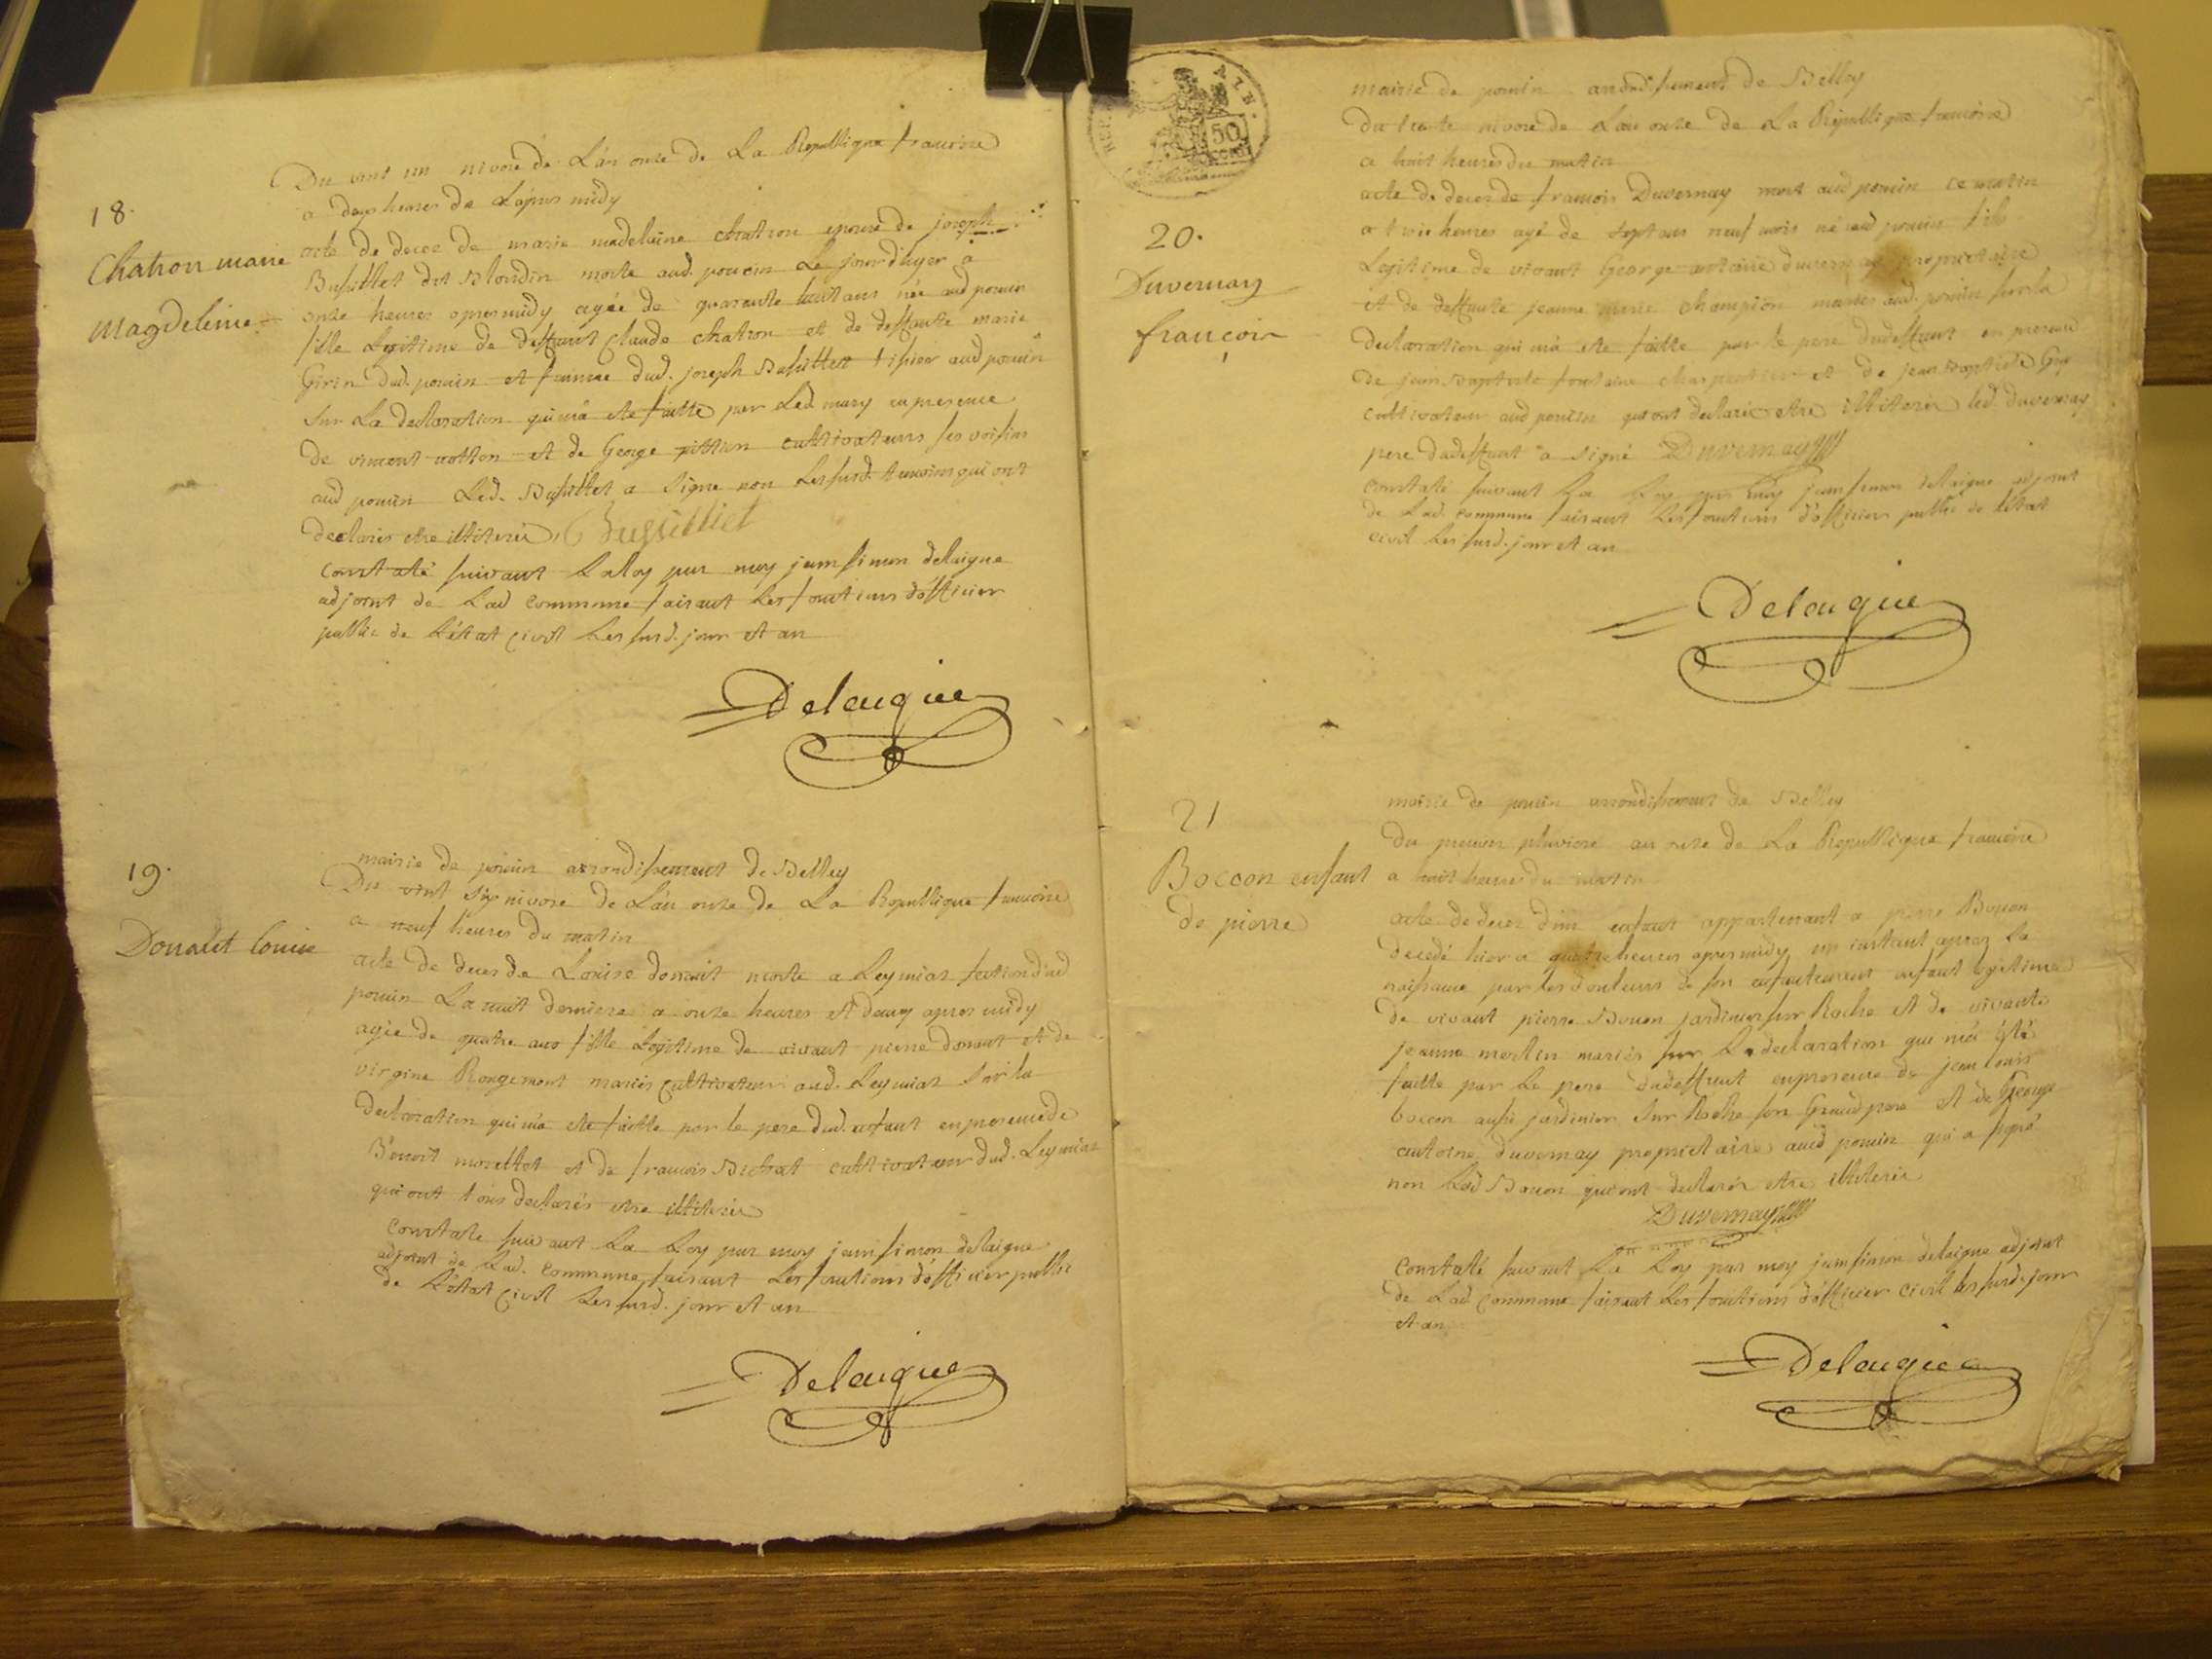 18.
Chatron marie
Magdeleine
Du vint un nivose de L'an onze de La Republique francoise
a deux heures de L'apres midy
acte de deces de marie madelaine chatron epouse de joseph
Bussillet dit Blondin morte aud. poncin Le jour d'hyer a
onze heures apres midy agée de quarante huit ans née aud poncin
fille Legitime de deffunt Claude chatron et de deffunte marie
Girin dud. poncin et femme dud. joseph Bussillet tissier aud poncin
sur La declaration qui m'a eté faitte par Led. mary en presence
de vincent et de George cultivateurs ses voisins
aud poncin Led. Bussillet a signé non Les susd. temoins qui ont
declarés etre illiterés Bussilliet
Constaté suivant La loy par moy jean simon delaigue
adjoint de Lad commune faisant Les fonctions d'officier
public de L'état Civil Les susd. jour et an
Delaigue
19.
Donalit Louise
mairie de poncin arrondissement de Belley
Du vint six nivose de L'an onze de La Republique francoise
a neuf heures du matin
acte de deces de Louise donait morte a Leymiat section dud
poncin La nuit derniere a onze heures et demy apres midy
agée de quatre ans fille Legitime de vivant pierre donait et de
virgine Rougemont mariés cultivateurs aud. Leymiat sur la
declaration qui m'a eté faitte par le pere dud. enfant en presence de
Benoit morellet et de francois Bichat cultivateur dud. Leymiat
qui ont tous declarés etre illiterés
Constaté suivant La Loy par moy jean simon delaigue
adjoint de Lad. commune faisant Les fonctions d'officier public
de L'état Civil Les susd. jour et an
Delaigue
50
20.
Duvernay
francois
mairie de poncin arrondissement de Belley
du trente nivose de L'an onze de La Republique francoise
a huit heures du matin
acte de deces de francois Duvernay mort aud poncin ce matin
a trois heures agé de sept ans neuf mois né aud poncin fils
Legitime de vivant George antoine duvernay proprietaire
et de deffunte jeanne marie Champion mariés aud. poncin sur la
declaration qui m'a eté faitte par le pere dud deffunt en presence
de jean Baptiste fontaine charpentier et de jean Baptiste
cultivateur aud poncin qui ont declaré etre illiterés led. duvernay
pere dud deffunt a signé Duvernay
Constaté suivant La Loy par moy jean simon delaigue adjoint
de Lad. commune faisant Les fonctions d'officier public de L'état
civil Les susd. jour et an
Delaigue
21
Boccon enfant
de pierre
mairie de poncin arrondissement de Belley
du premier pluviose an onze de La Republique francoise
a huit heures du matin
acte de deces d'un enfant appartenant a pierre Bocon
decedé hier a quatre heures apres midy un instant aprez la
naissance par les douleurs de son enfantement enfant legitime
de vivant pierre Bocon jardinier sur Roche et de vivante
jeanne merlin mariés sur La declaration qui m'a eté
faitte par Le pere dud deffunt en presence de jean louis
boccon aussi jardinier sur Roche son Grand pere et de George
antoine duvernay proprietaire aud poncin qui a signé
non Led Bocon qui ont declarés etre illiterés
Duvernay
Constaté suivant La Loy par moy jean simon delaigue adjoint
de Lad commune faisant Les fonctions d'officier civil Les susd. jour
et an
Delaigue